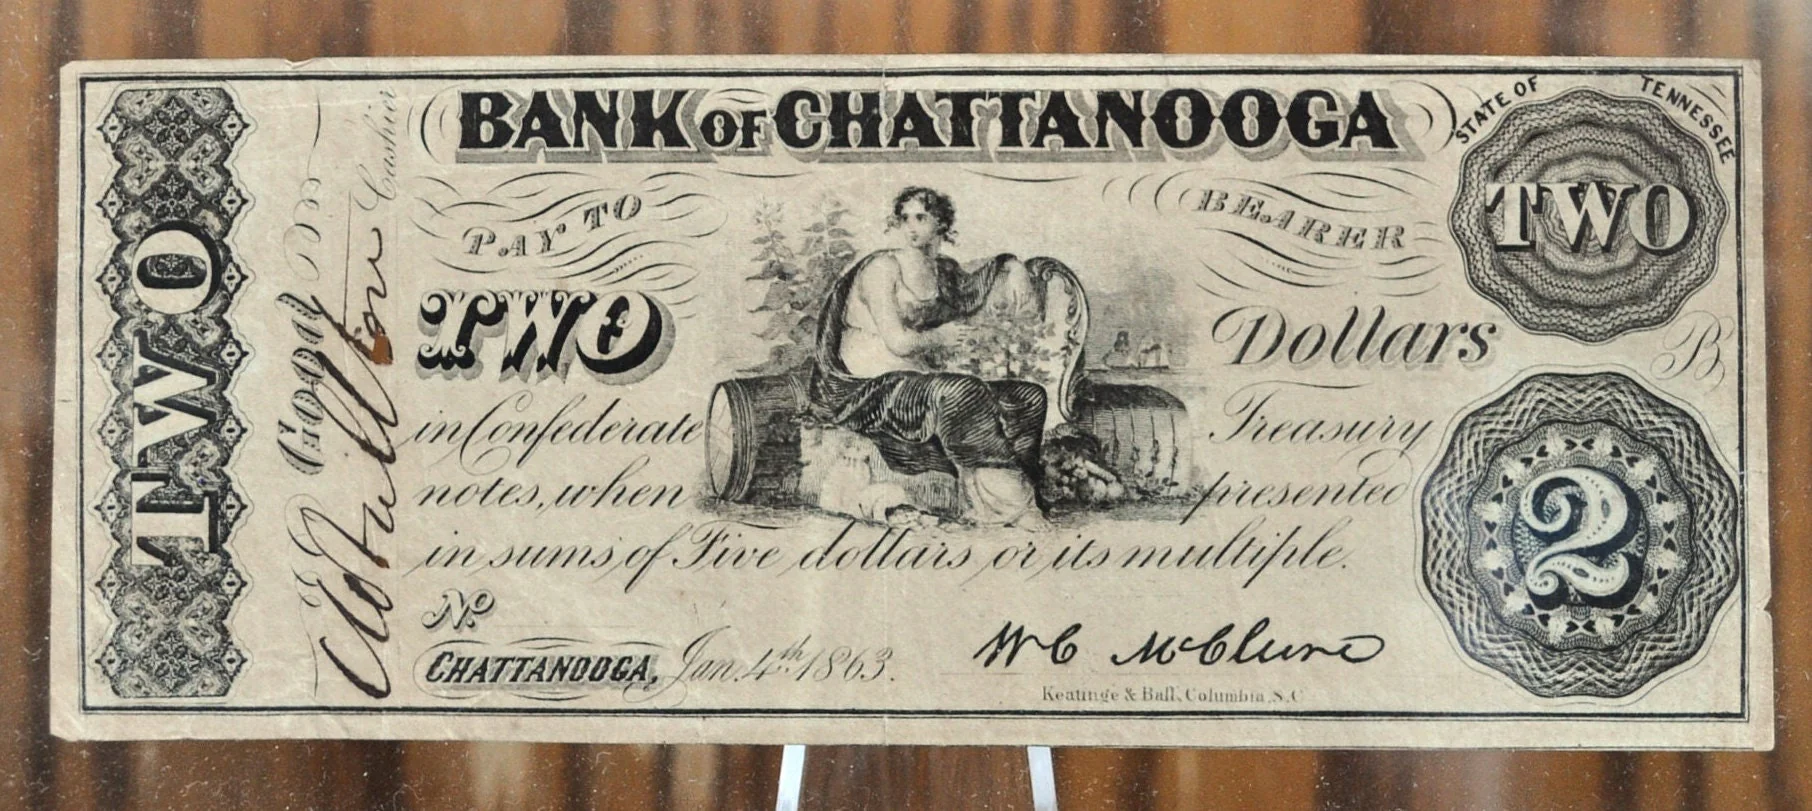 BANK OF CHATTANOOGA
STATE OF TENNESSEE
PAY TO BEARER
TWO
TWO
TWO Dollars
in Confederate Treasury
notes, when presented
in sums of Five dollars or its multiple.
B
2
No
CHATTANOOGA, Jan. 4th 1863.
W C McClure
Keatinge & Ball, Columbia, S.C.
Good
Cashier